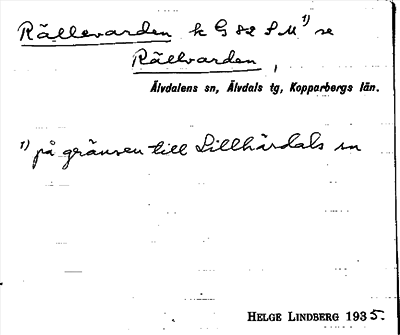 Rällevarden k G 82 S M 1) se
Rällvarden,
Älvdalens sn, Älvdals tg, Kopparbergs län.
1) på gränsen till Lillhärdals sn
HELGE LINDBERG 1935.